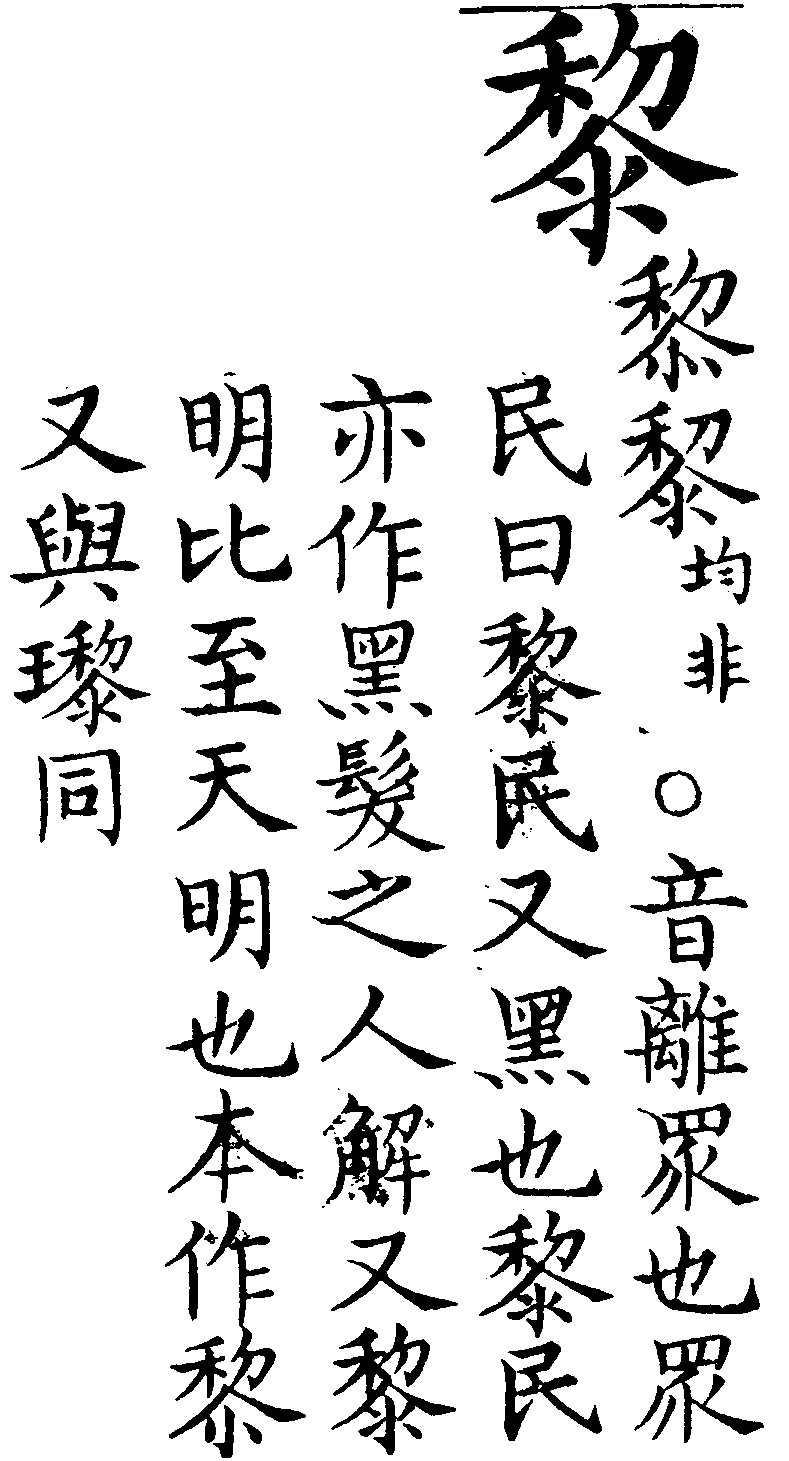 黎
黎黎均非○音離眾也眾
民曰黎民又黑也黎民
亦作黑髮之人解又黎
明比至天明也本作黎
又與瓈同